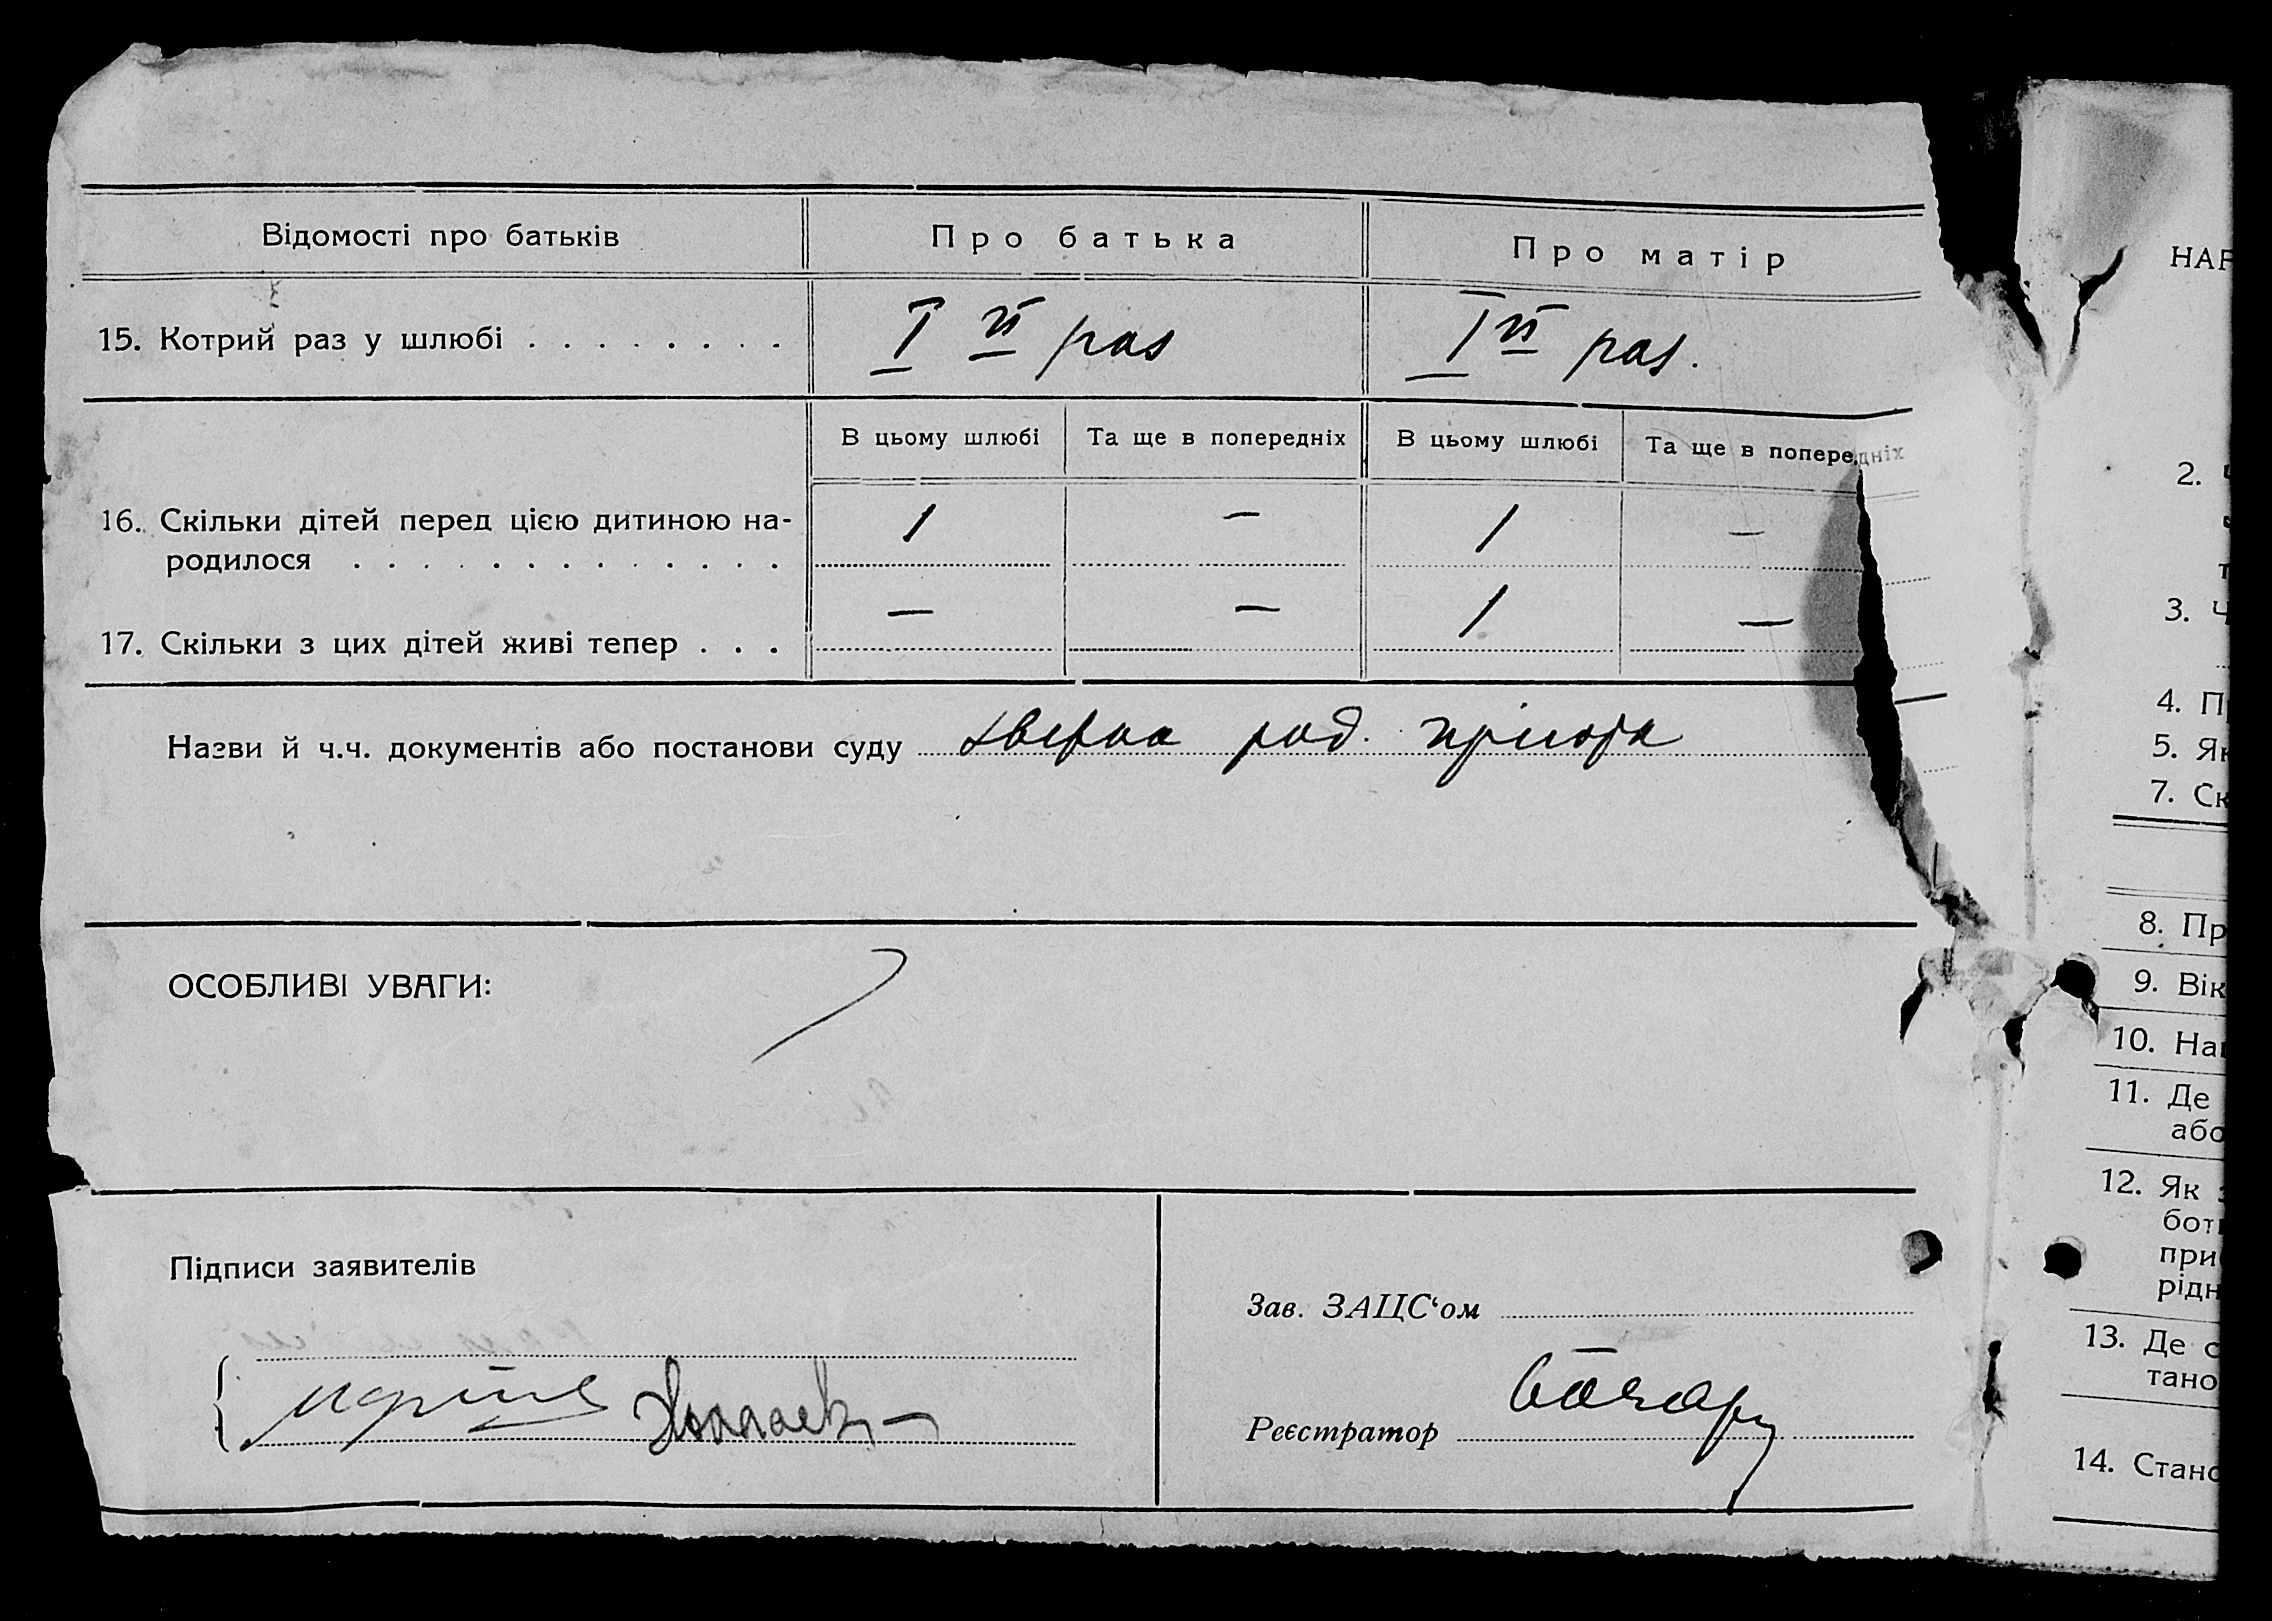 Відомості про батьків
Про батька
Про матір
15. Котрий раз у шлюбі . . . . . . . .
Iй раз
Iй раз.
В цьому шлюбі
Та ще в попередніх
В цьому шлюбі
Та ще в попередніх
16. Скільки дітей перед цією дитиною на-
родилося . . . . . . . . . . . . .
1
—
1
—
17. Скільки з цих дітей живі тепер . . .
—
—
1
—
Назви й ч.ч. документів або постанови суду
род.
ОСОБЛИВІ УВАГИ:
Підписи заявителів
Зав. ЗАЦС‘ом
Реєстратор
НАР
2.
3. Ч
4. П
5. Як
7. Ск
8. Пр
9. Вік
10. На
11. Де
або
12. Як
бот
при
рідн
13. Де с
тано
14. Стано